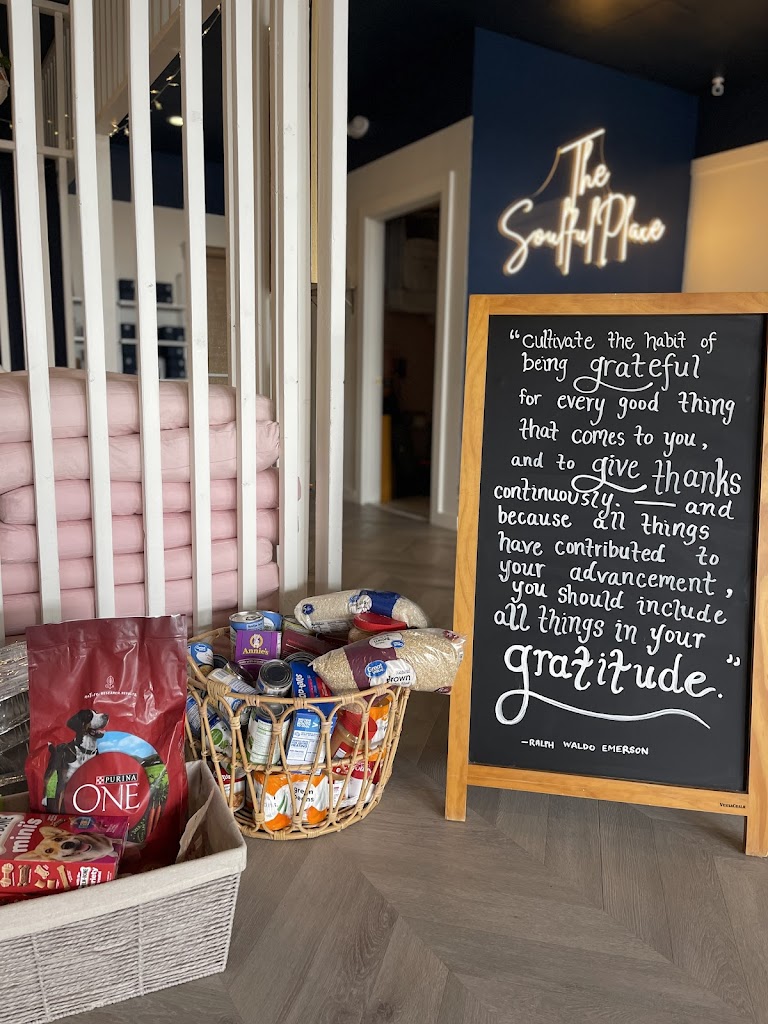 The
Soulful Place
“Cultivate the habit of
being grateful
for every good thing
that comes to you,
and to give thanks
continuously. — and
because all things
have contributed to
your advancement,
you should include
all things in your
gratitude.”
-RALPH WALDO EMERSON
Annie's
Great Value
Brown
PURINA
ONE
minis
green